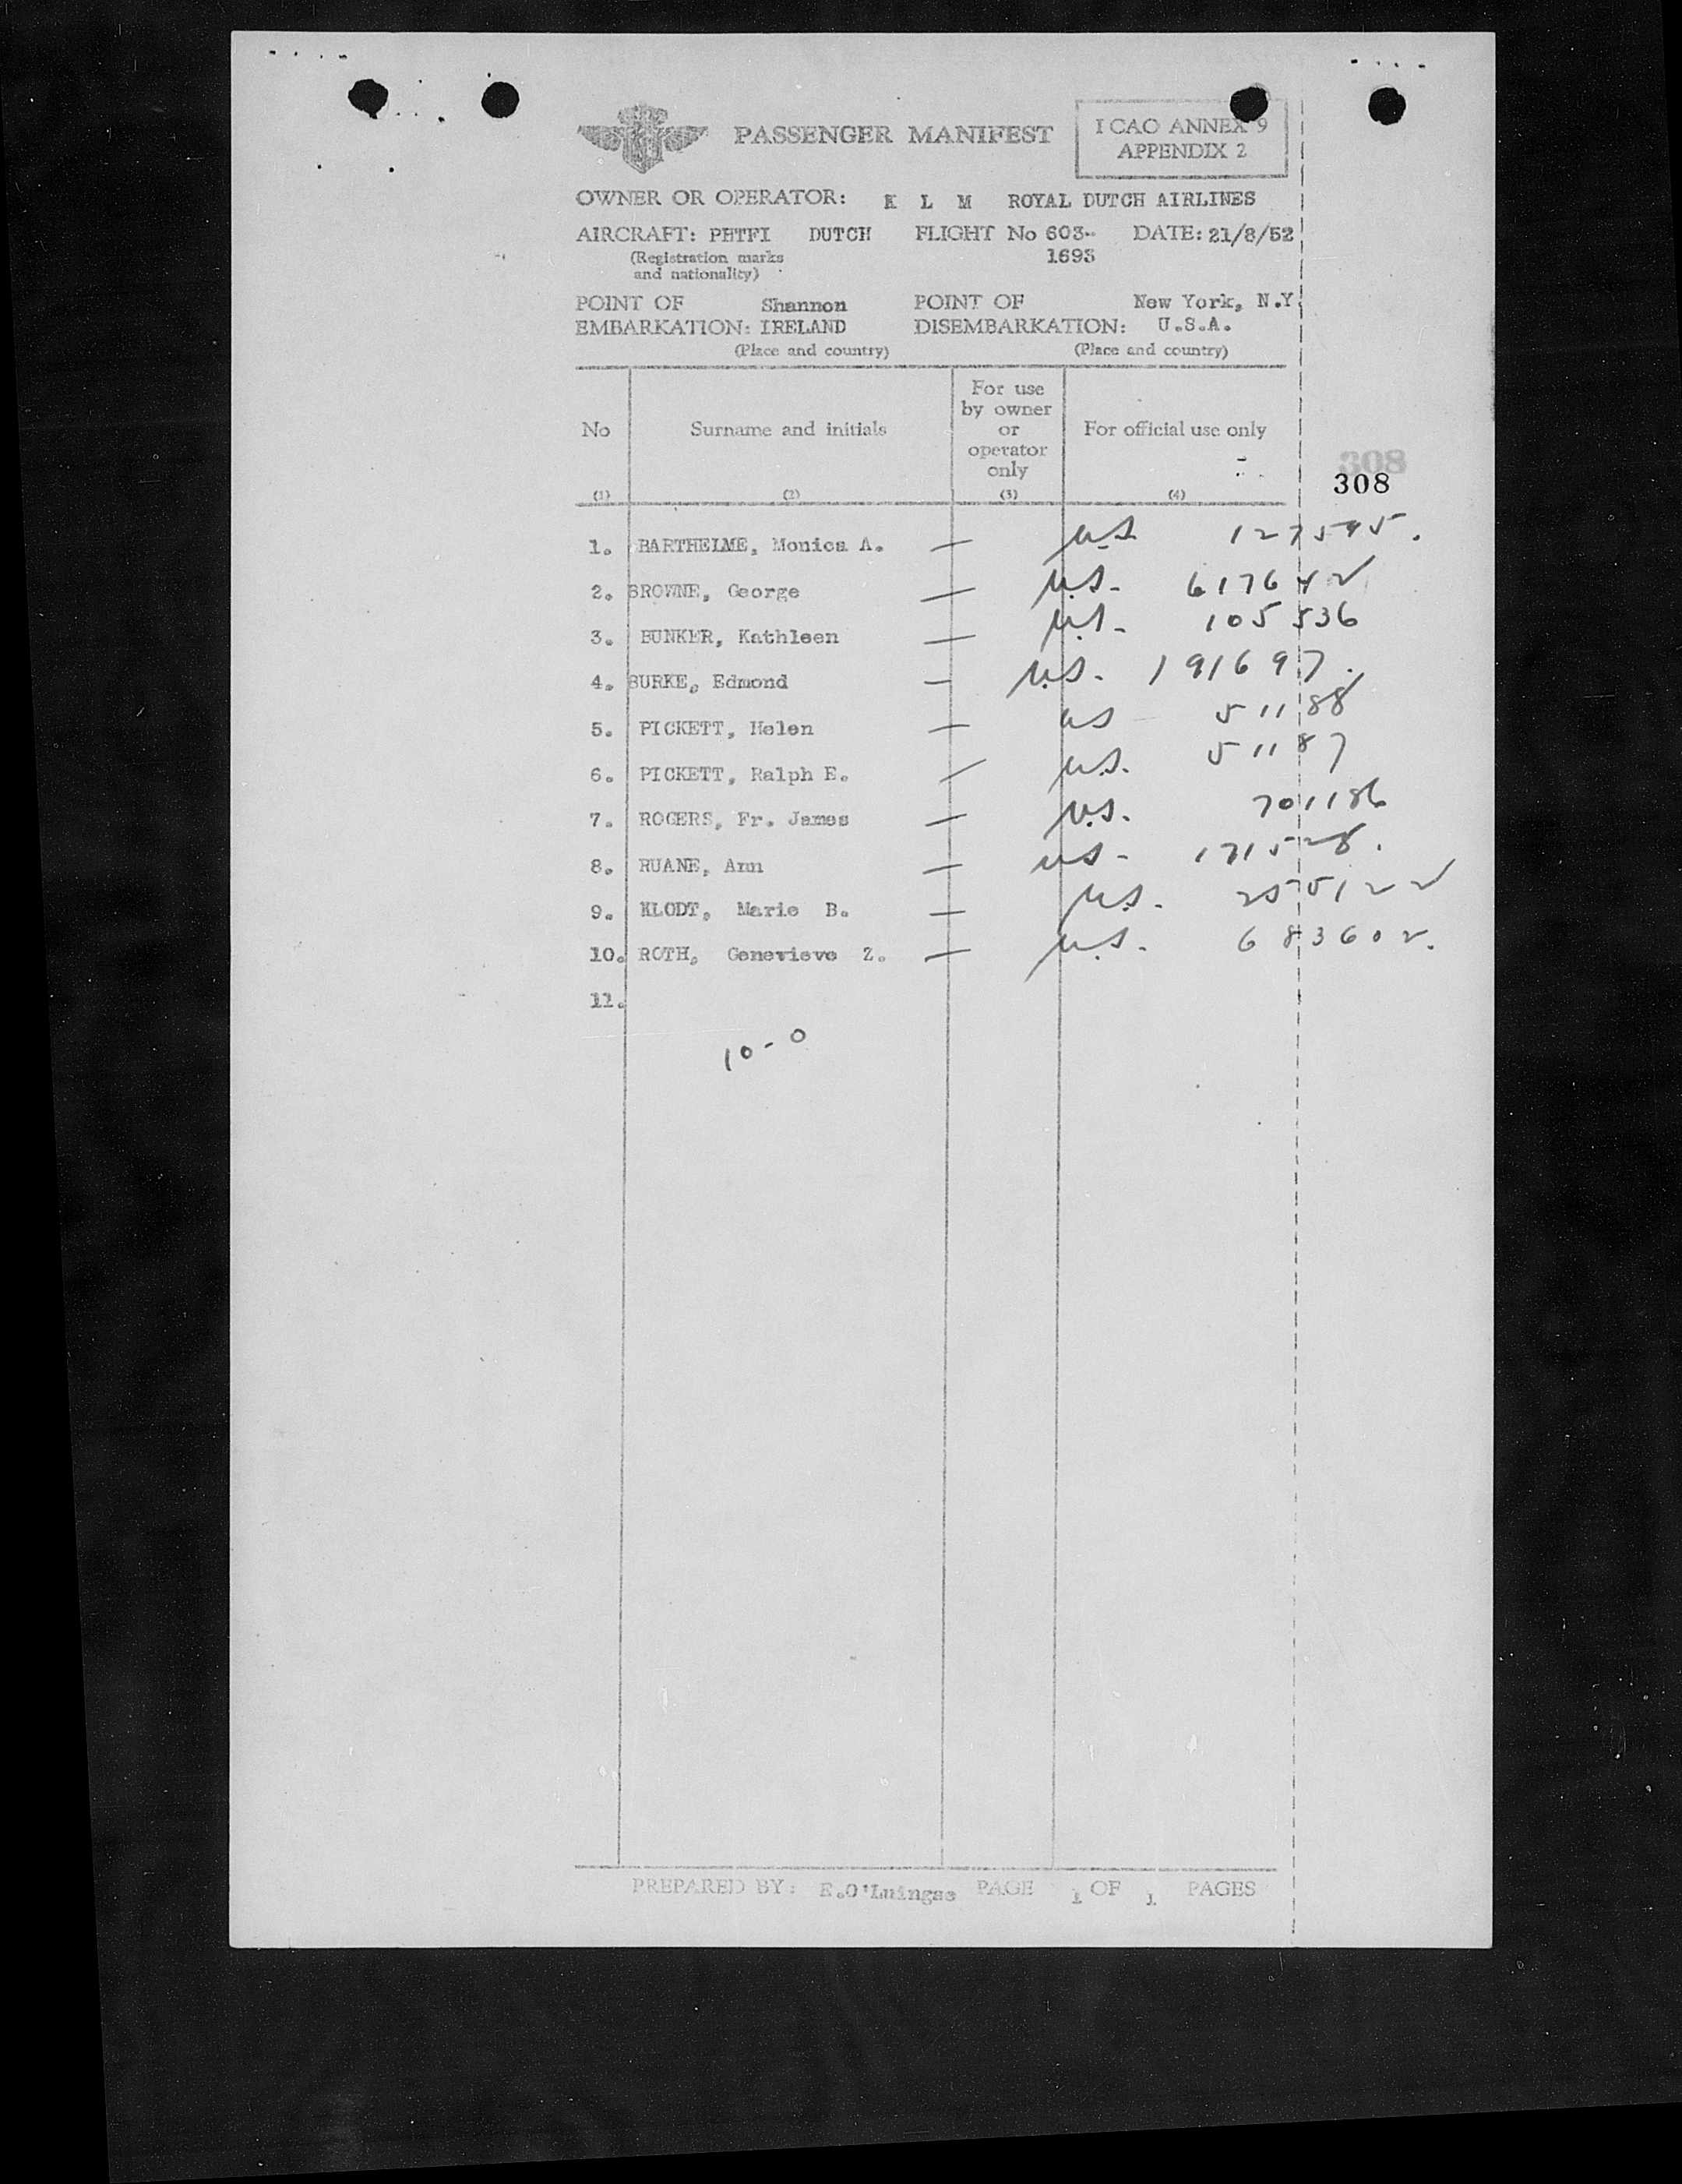 PASSENGER MANIFEST
ICAO ANNEX 9
APPENDIX 2
OWNER OR OPERATOR: K L M ROYAL DUTCH AIRLINES
AIRCRAFT: PHTFI DUTCH FLIGHT No 603- DATE: 21/8/52
(Registration marks 1693
and nationality)
POINT OF Shannon POINT OF New York, N.Y.
EMBARKATION: IRELAND DISEMBARKATION: U.S.A.
(Place and country) (Place and country)
No Surname and initials For use by owner or operator only For official use only
308
308
(1) (2) (3) (4)
1. BARTHELME, Monica A. — U.S. 127595.
2. BROWNE, George — U.S. 617642
3. BUNKER, Kathleen — U.S. 105536
4. BURKE, Edmond — U.S. 191697.
5. PICKETT, Helen — US 51188
6. PICKETT, Ralph E. — U.S. 51187
7. ROGERS, Fr. James — U.S. 701186
8. RUANE, Ann — US- 171528.
9. KLODT, Marie B. — U.S. 255122
10. ROTH, Genevieve Z. — U.S. 683602.
11.
10-0
PREPARED BY: PAGE 1 OF 1 PAGES